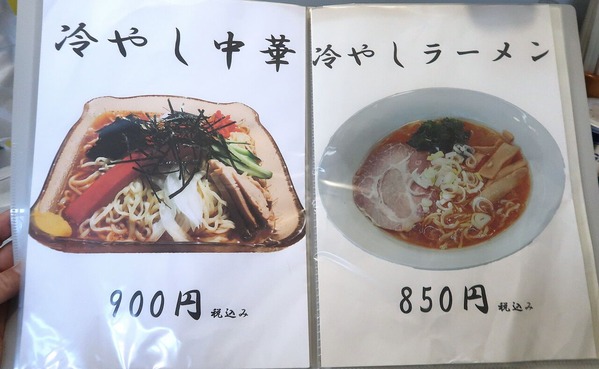 冷やし中華
900円 税込み
冷やしラーメン
850円 税込み